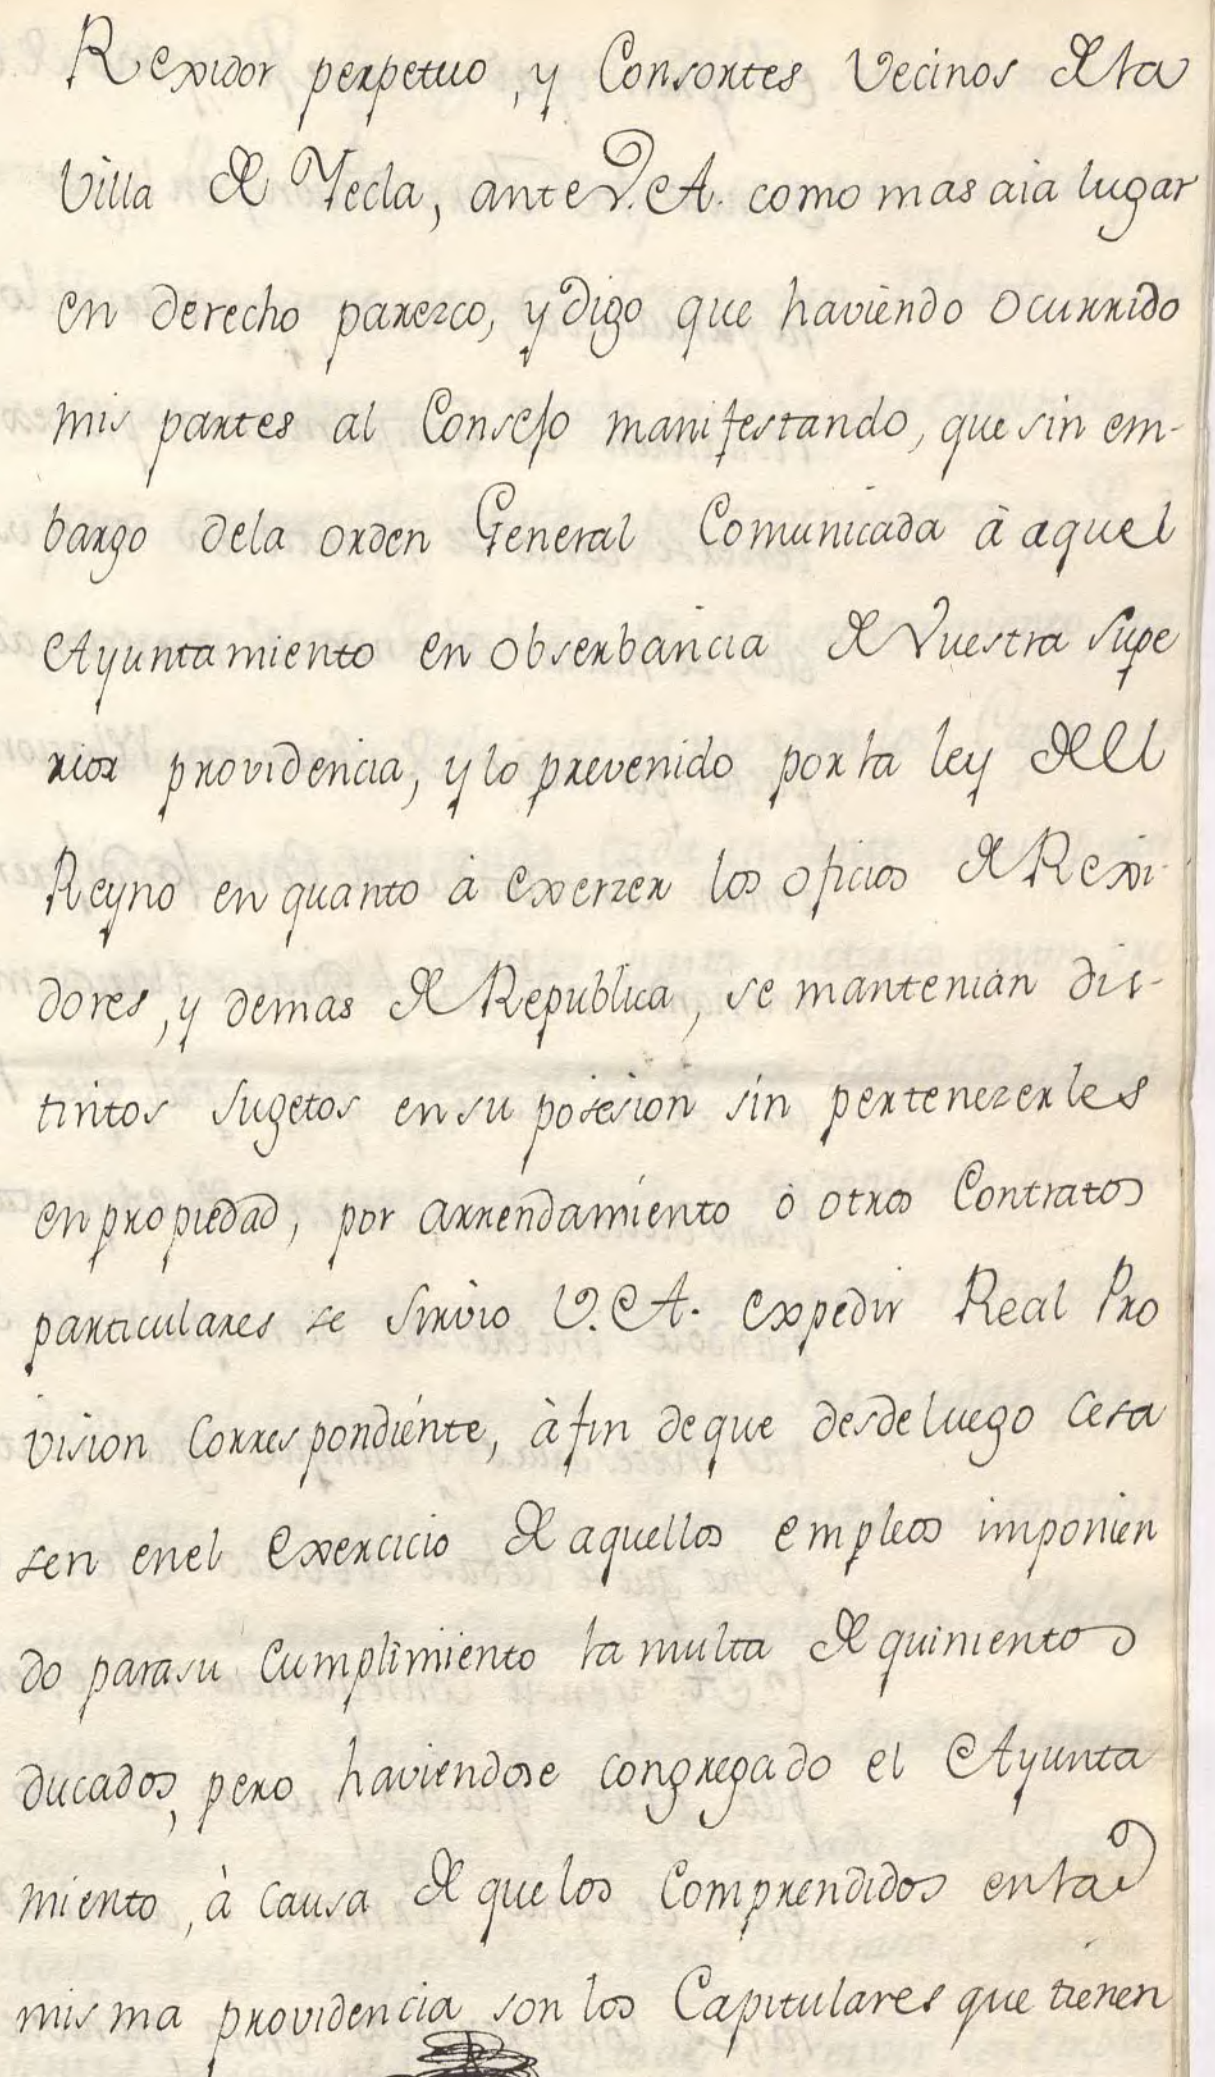 Rexidor perpetuo, y Consortes Vecinos de la
Villa de Yecla, ante V. A. como mas aia lugar
en derecho parezco, y digo que haviendo ocurrido
mis partes al Consejo manifestando, que sin em-
bargo dela orden General Comunicada à aquel
Ayuntamiento en obserbancia de Vuestra supe
rior providencia, y lo prevenido por la ley del
Reyno en quanto à exerzer los oficios de Rexi-
dores, y demas de Republica, se mantenian dis-
tintos sugetos en su posesion sin pertenezerles
en propiedad, por arrendamiento ò otros Contratos
particulares se sirvio V. A. expedir Real Pro
vision Correspondiente, à fin de que desde luego cesa
sen enel exercicio de aquellos empleos imponien
do para su Cumplimiento la multa de quinientos
ducados, pero haviendose congregado el Ayunta
miento, à causa de que los Comprendidos en la
misma providencia son los Capitulares que tienen